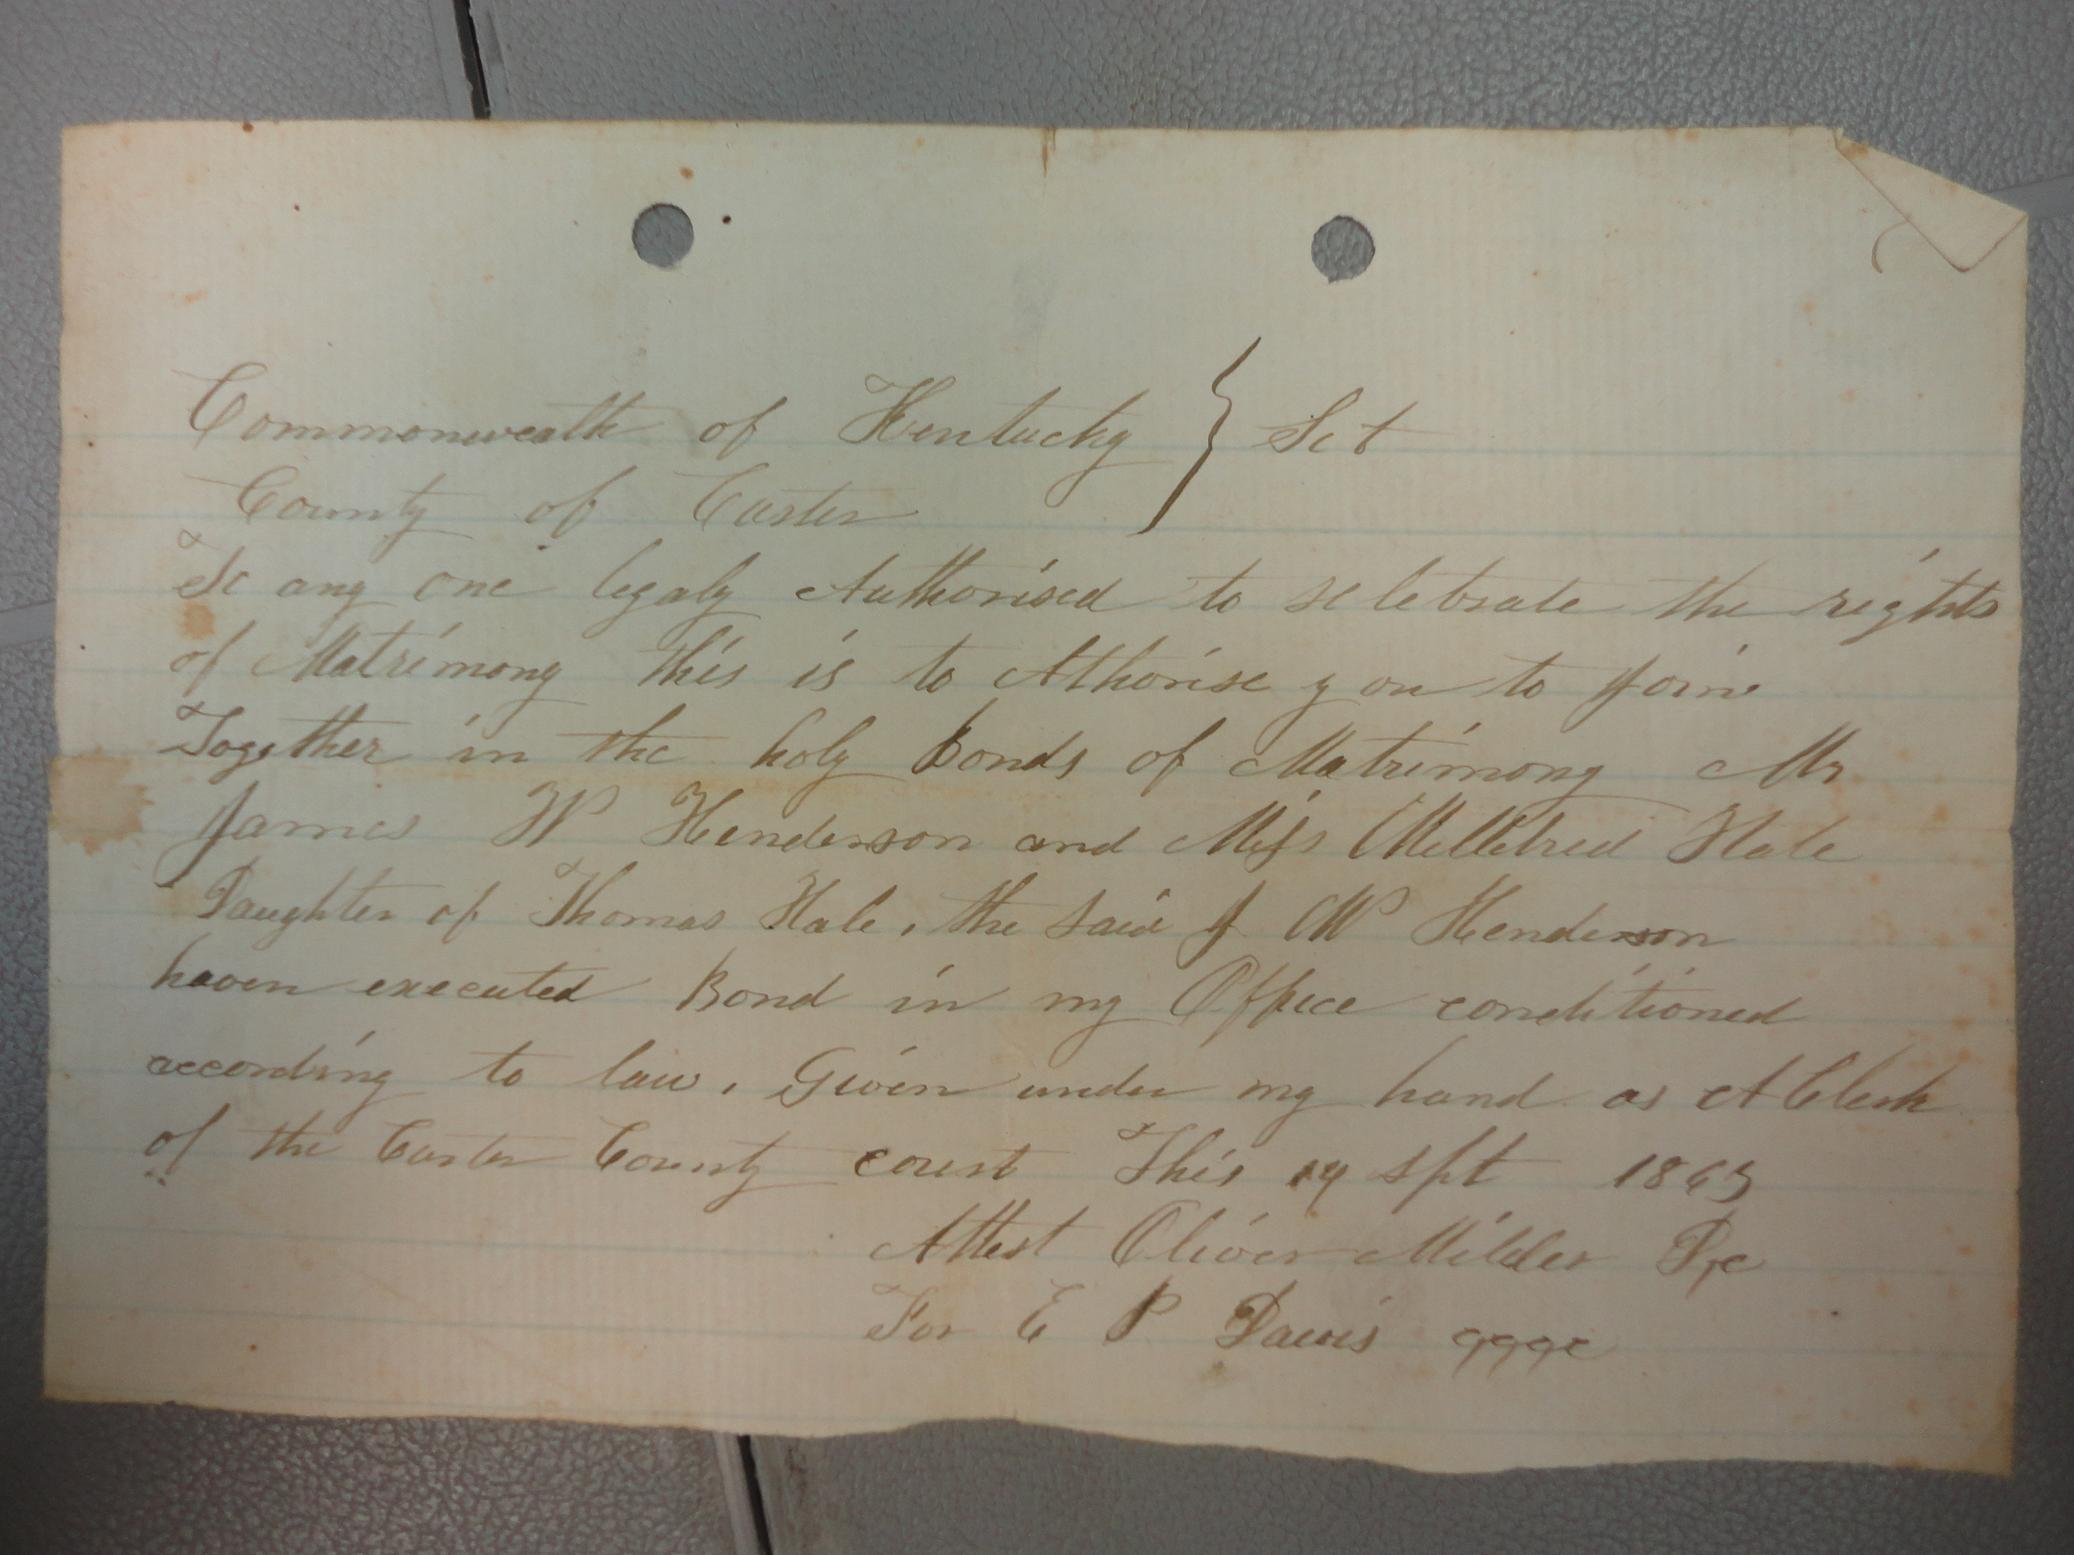 Commonwealth of Kentucky } Sct
County of Carter
To any one legaly Authorised to selebrate the rights
of Matrimony this is to Athorise you to join
Together in the holy bonds of Matrimony Mr
James W Henderson and Miss Milldred Hale
Daughter of Thomas Hale, the said J W Henderson
haven executed Bond in my Office conditioned
according to law, Given under my hand as A Clerk
of the Carter County court This 14 Spt 1863
Attest Oliver Milder D,c
For E P Davis